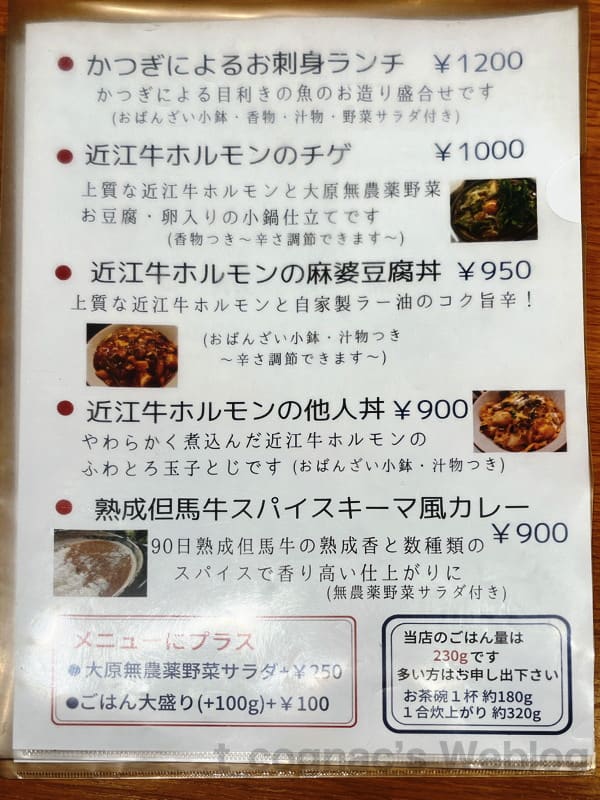 ● かつぎによるお刺身ランチ ￥1200
かつぎによる目利きの魚のお造り盛合せです
(おばんざい小鉢・香物・汁物・野菜サラダ付き)
● 近江牛ホルモンのチゲ ￥1000
上質な近江牛ホルモンと大原無農薬野菜
お豆腐・卵入りの小鍋仕立てです
(香物つき～辛さ調節できます～)
● 近江牛ホルモンの麻婆豆腐丼 ￥950
上質な近江牛ホルモンと自家製ラー油のコク旨辛！
(おばんざい小鉢・汁物つき
～辛さ調節できます～)
● 近江牛ホルモンの他人丼 ￥900
やわらかく煮込んだ近江牛ホルモンの
ふわとろ玉子とじです (おばんざい小鉢・汁物つき)
● 熟成但馬牛スパイスキーマ風カレー
￥900
90日熟成但馬牛の熟成香と数種類の
スパイスで香り高い仕上がりに
(無農薬野菜サラダ付き)
メニューにプラス
●大原無農薬野菜サラダ+￥250
●ごはん大盛り(+100g)+￥100
当店のごはん量は
230gです
多い方はお申し出下さい
お茶碗１杯 約180g
１合炊上がり 約320g
t.cognac's Weblog